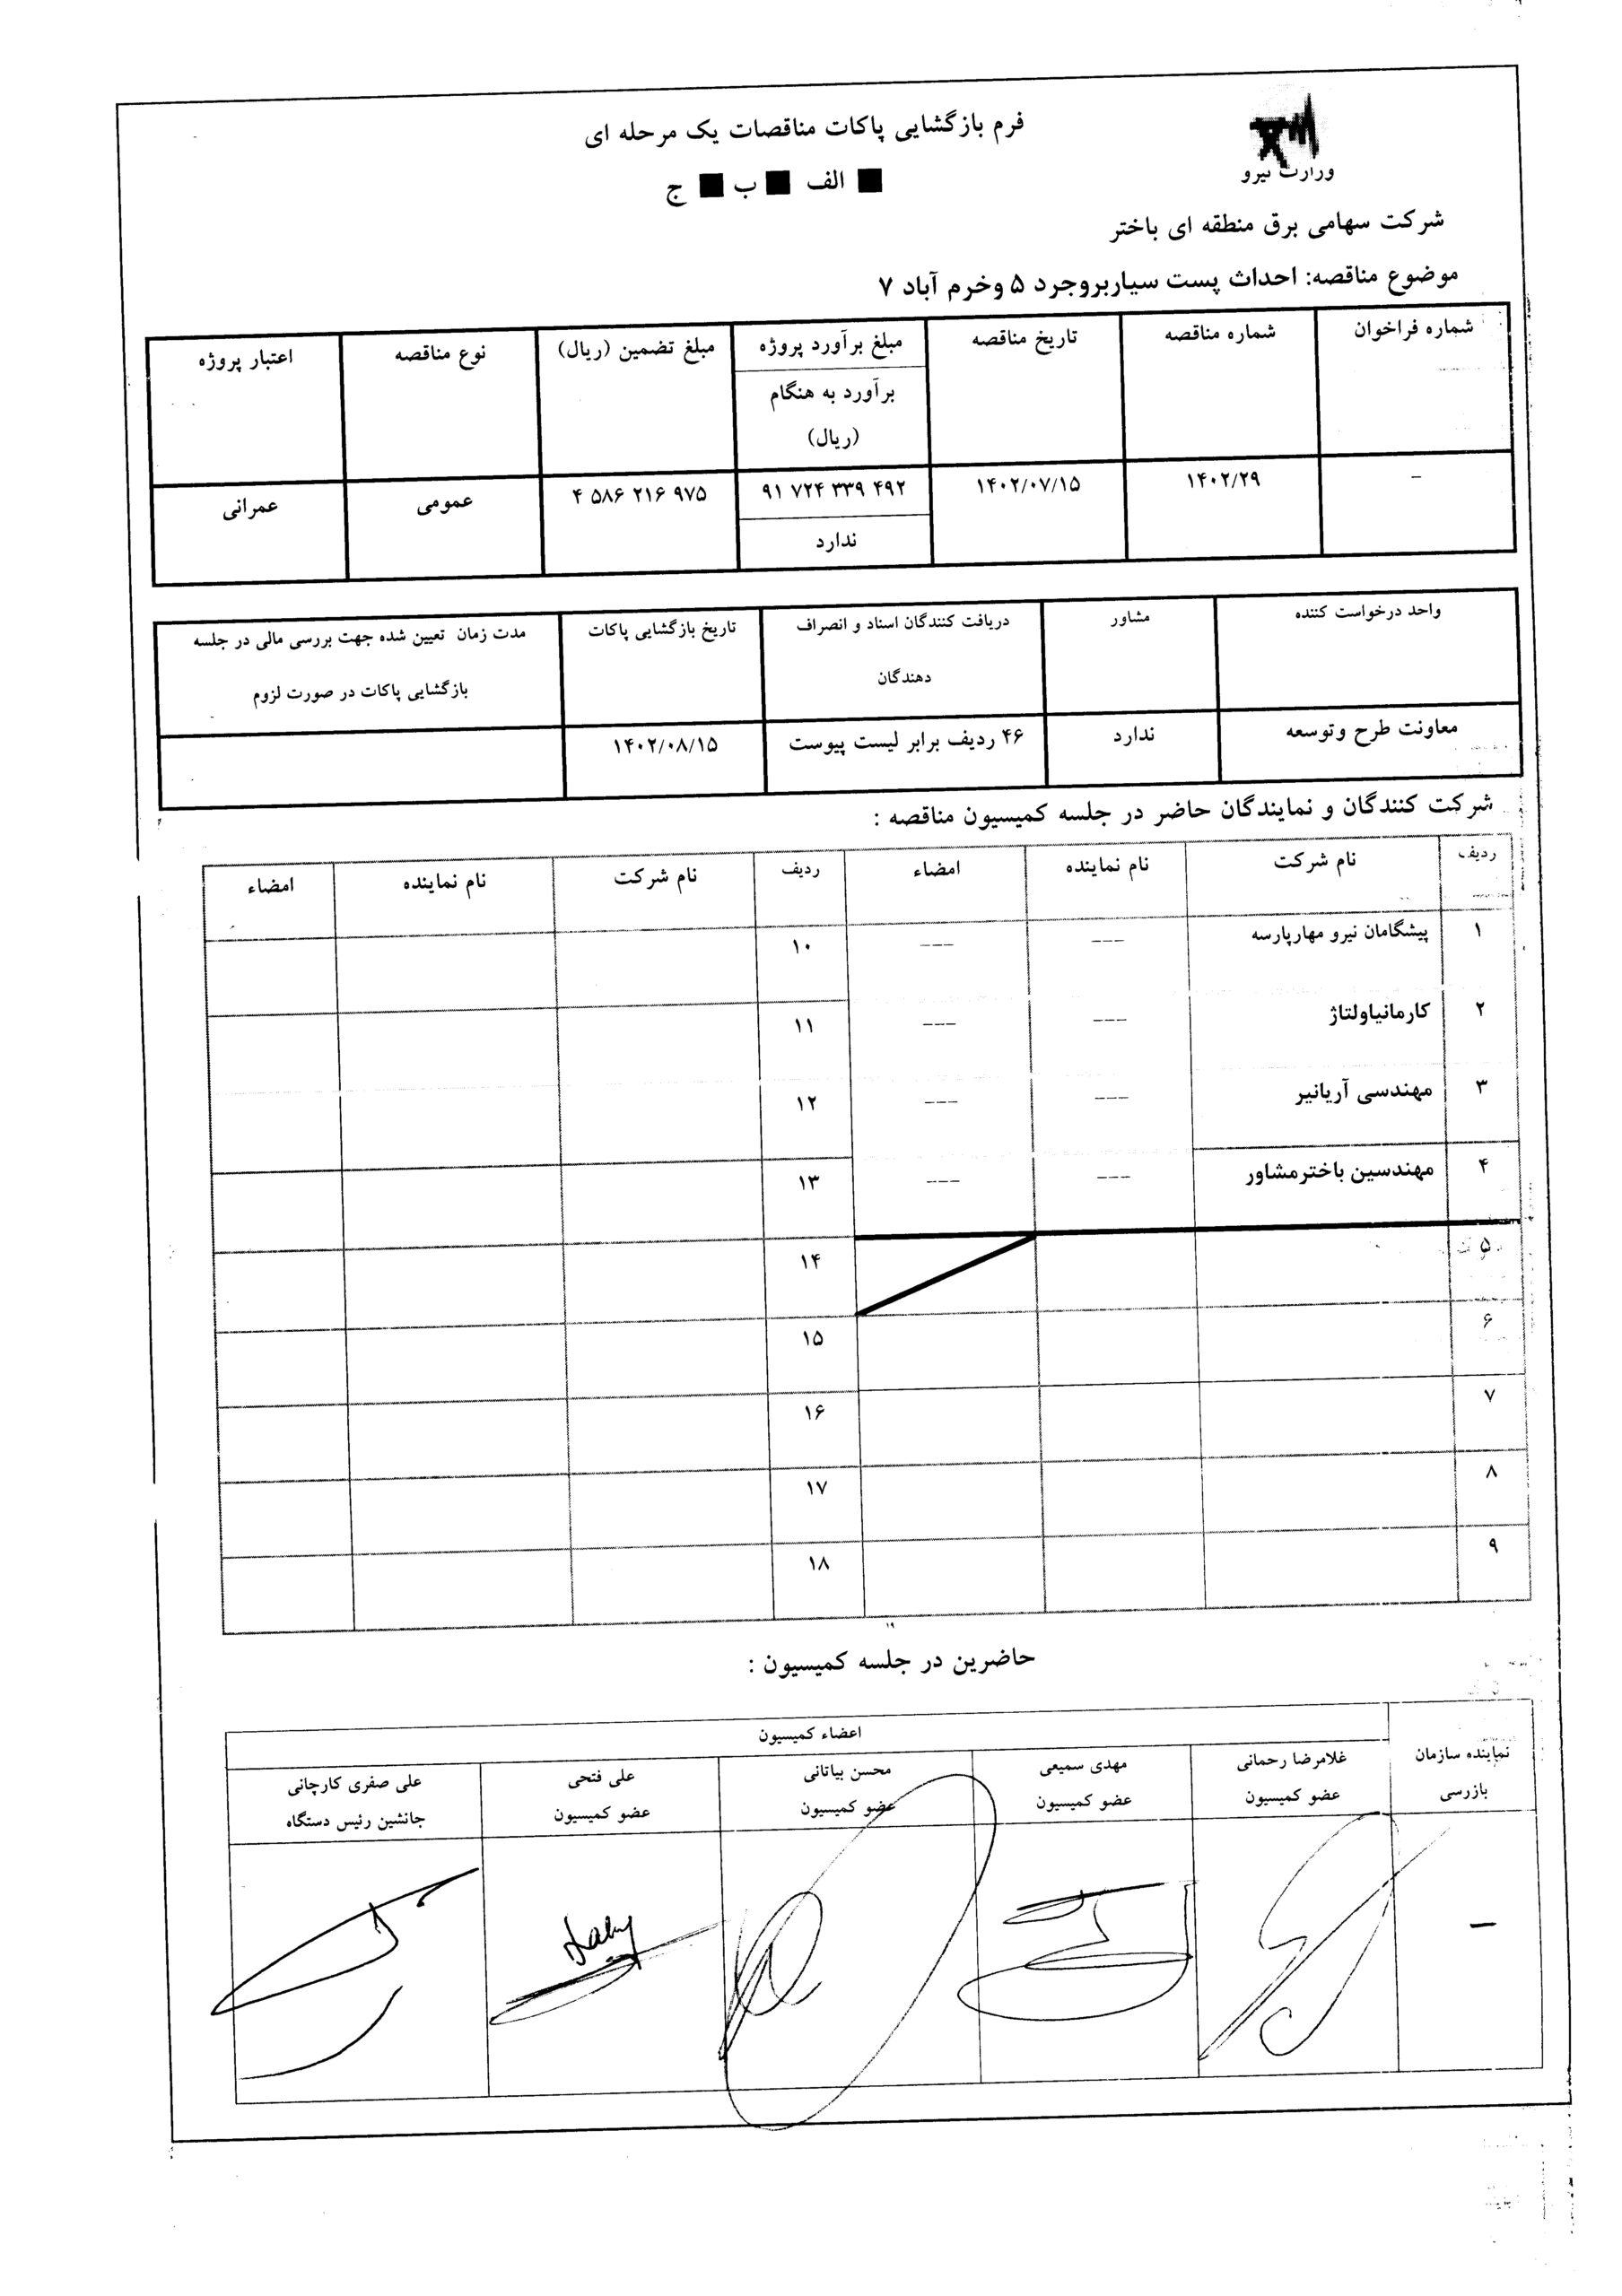 وزارت نیرو
فرم بازگشایی پاکات مناقصات یک مرحله ای
■ الف ■ ب ■ ج
شرکت سهامی برق منطقه ای باختر
موضوع مناقصه: احداث پست سیاربروجرد ۵ وخرم آباد ۷
شماره فراخوان
شماره مناقصه
تاریخ مناقصه
مبلغ برآورد پروژه
برآورد به هنگام
(ریال)
مبلغ تضمین (ریال)
نوع مناقصه
اعتبار پروژه
–
۱۴۰۲/۲۹
۱۴۰۲/۰۷/۱۵
۹۱ ۷۲۴ ۳۳۹ ۴۹۲
ندارد
۴ ۵۸۶ ۲۱۶ ۹۷۵
عمومی
عمرانی
واحد درخواست کننده
مشاور
دریافت کنندگان اسناد و انصراف
دهندگان
تاریخ بازگشایی پاکات
مدت زمان تعیین شده جهت بررسی مالی در جلسه
بازگشایی پاکات در صورت لزوم
معاونت طرح وتوسعه
ندارد
۴۶ ردیف برابر لیست پیوست
۱۴۰۲/۰۸/۱۵
شرکت کنندگان و نمایندگان حاضر در جلسه کمیسیون مناقصه :
ردیف نام شرکت نام نماینده امضاء ردیف نام شرکت نام نماینده امضاء
۱ پیشگامان نیرو مهارپارسه --- --- ۱۰
۲ کارمانیاولتاژ --- --- ۱۱
۳ مهندسی آریانیر --- --- ۱۲
۴ مهندسین باخترمشاور --- --- ۱۳
۵ ۱۴
۶ ۱۵
۷ ۱۶
۸ ۱۷
۹ ۱۸
حاضرین در جلسه کمیسیون :
اعضاء کمیسیون
نماینده سازمان
بازرسی
غلامرضا رحمانی
عضو کمیسیون
مهدی سمیعی
عضو کمیسیون
محسن بیاتانی
عضو کمیسیون
علی فتحی
عضو کمیسیون
علی صفری کارچانی
جانشین رئیس دستگاه
–